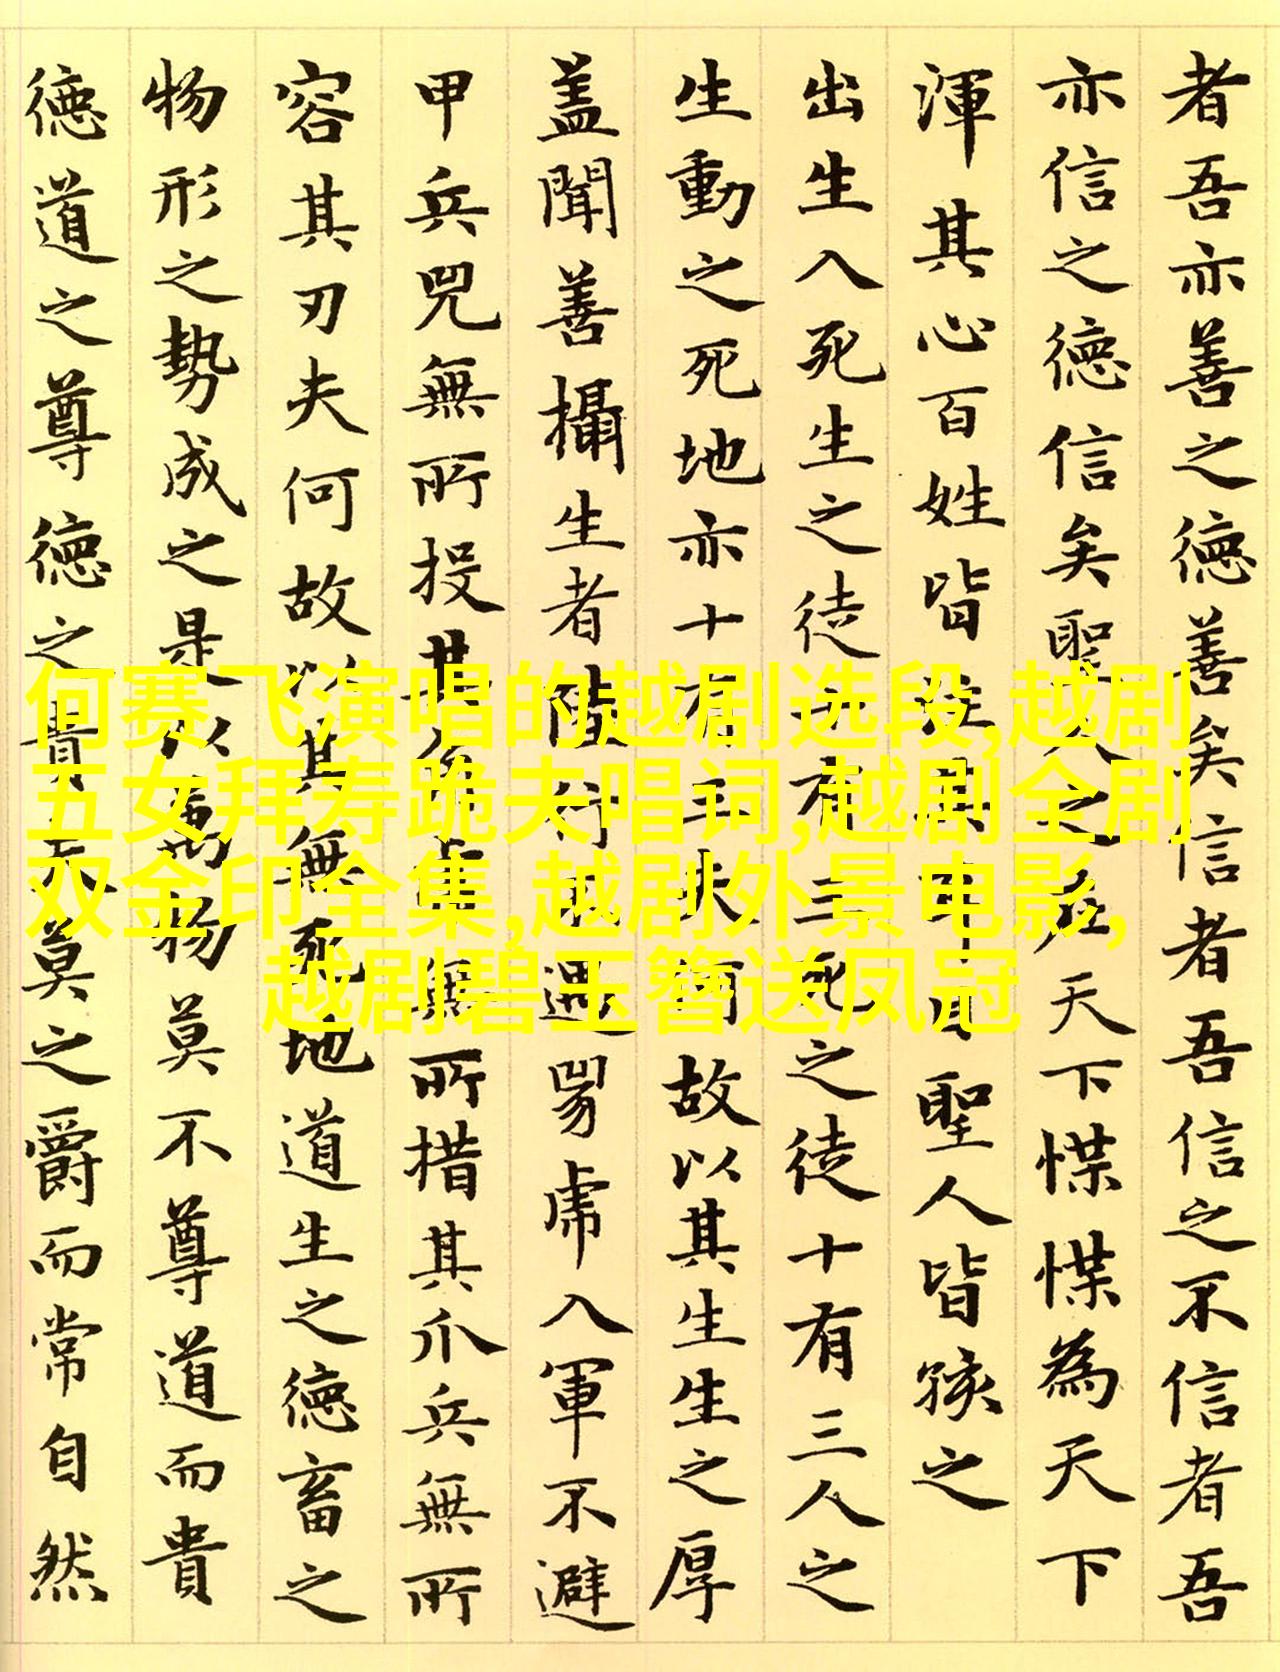 者吾亦善之德善矣信者吾信之不信者吾
亦信之德信矣聖人之在天下惵惵為天下
渾其心百姓皆注其耳目聖人皆孩之
出生入死生之徒十有三死之徒十有三人之
生動之死地亦十有三夫何故以其生生之厚
蓋聞善攝生者陸行不遇兕虎入軍不避
甲兵兕無所投其角虎無所措其爪兵無所
容其刃夫何故以其無死地道生之德畜之
物形之勢成之是以萬物莫不尊道而貴
德道之尊德之貴夫莫之爵而常自然
何赛飞演唱的越剧选段,越剧
五女拜寿跪夫唱词,越剧全剧
双金印全集,越剧外景电影,
越剧碧玉簪送凤冠